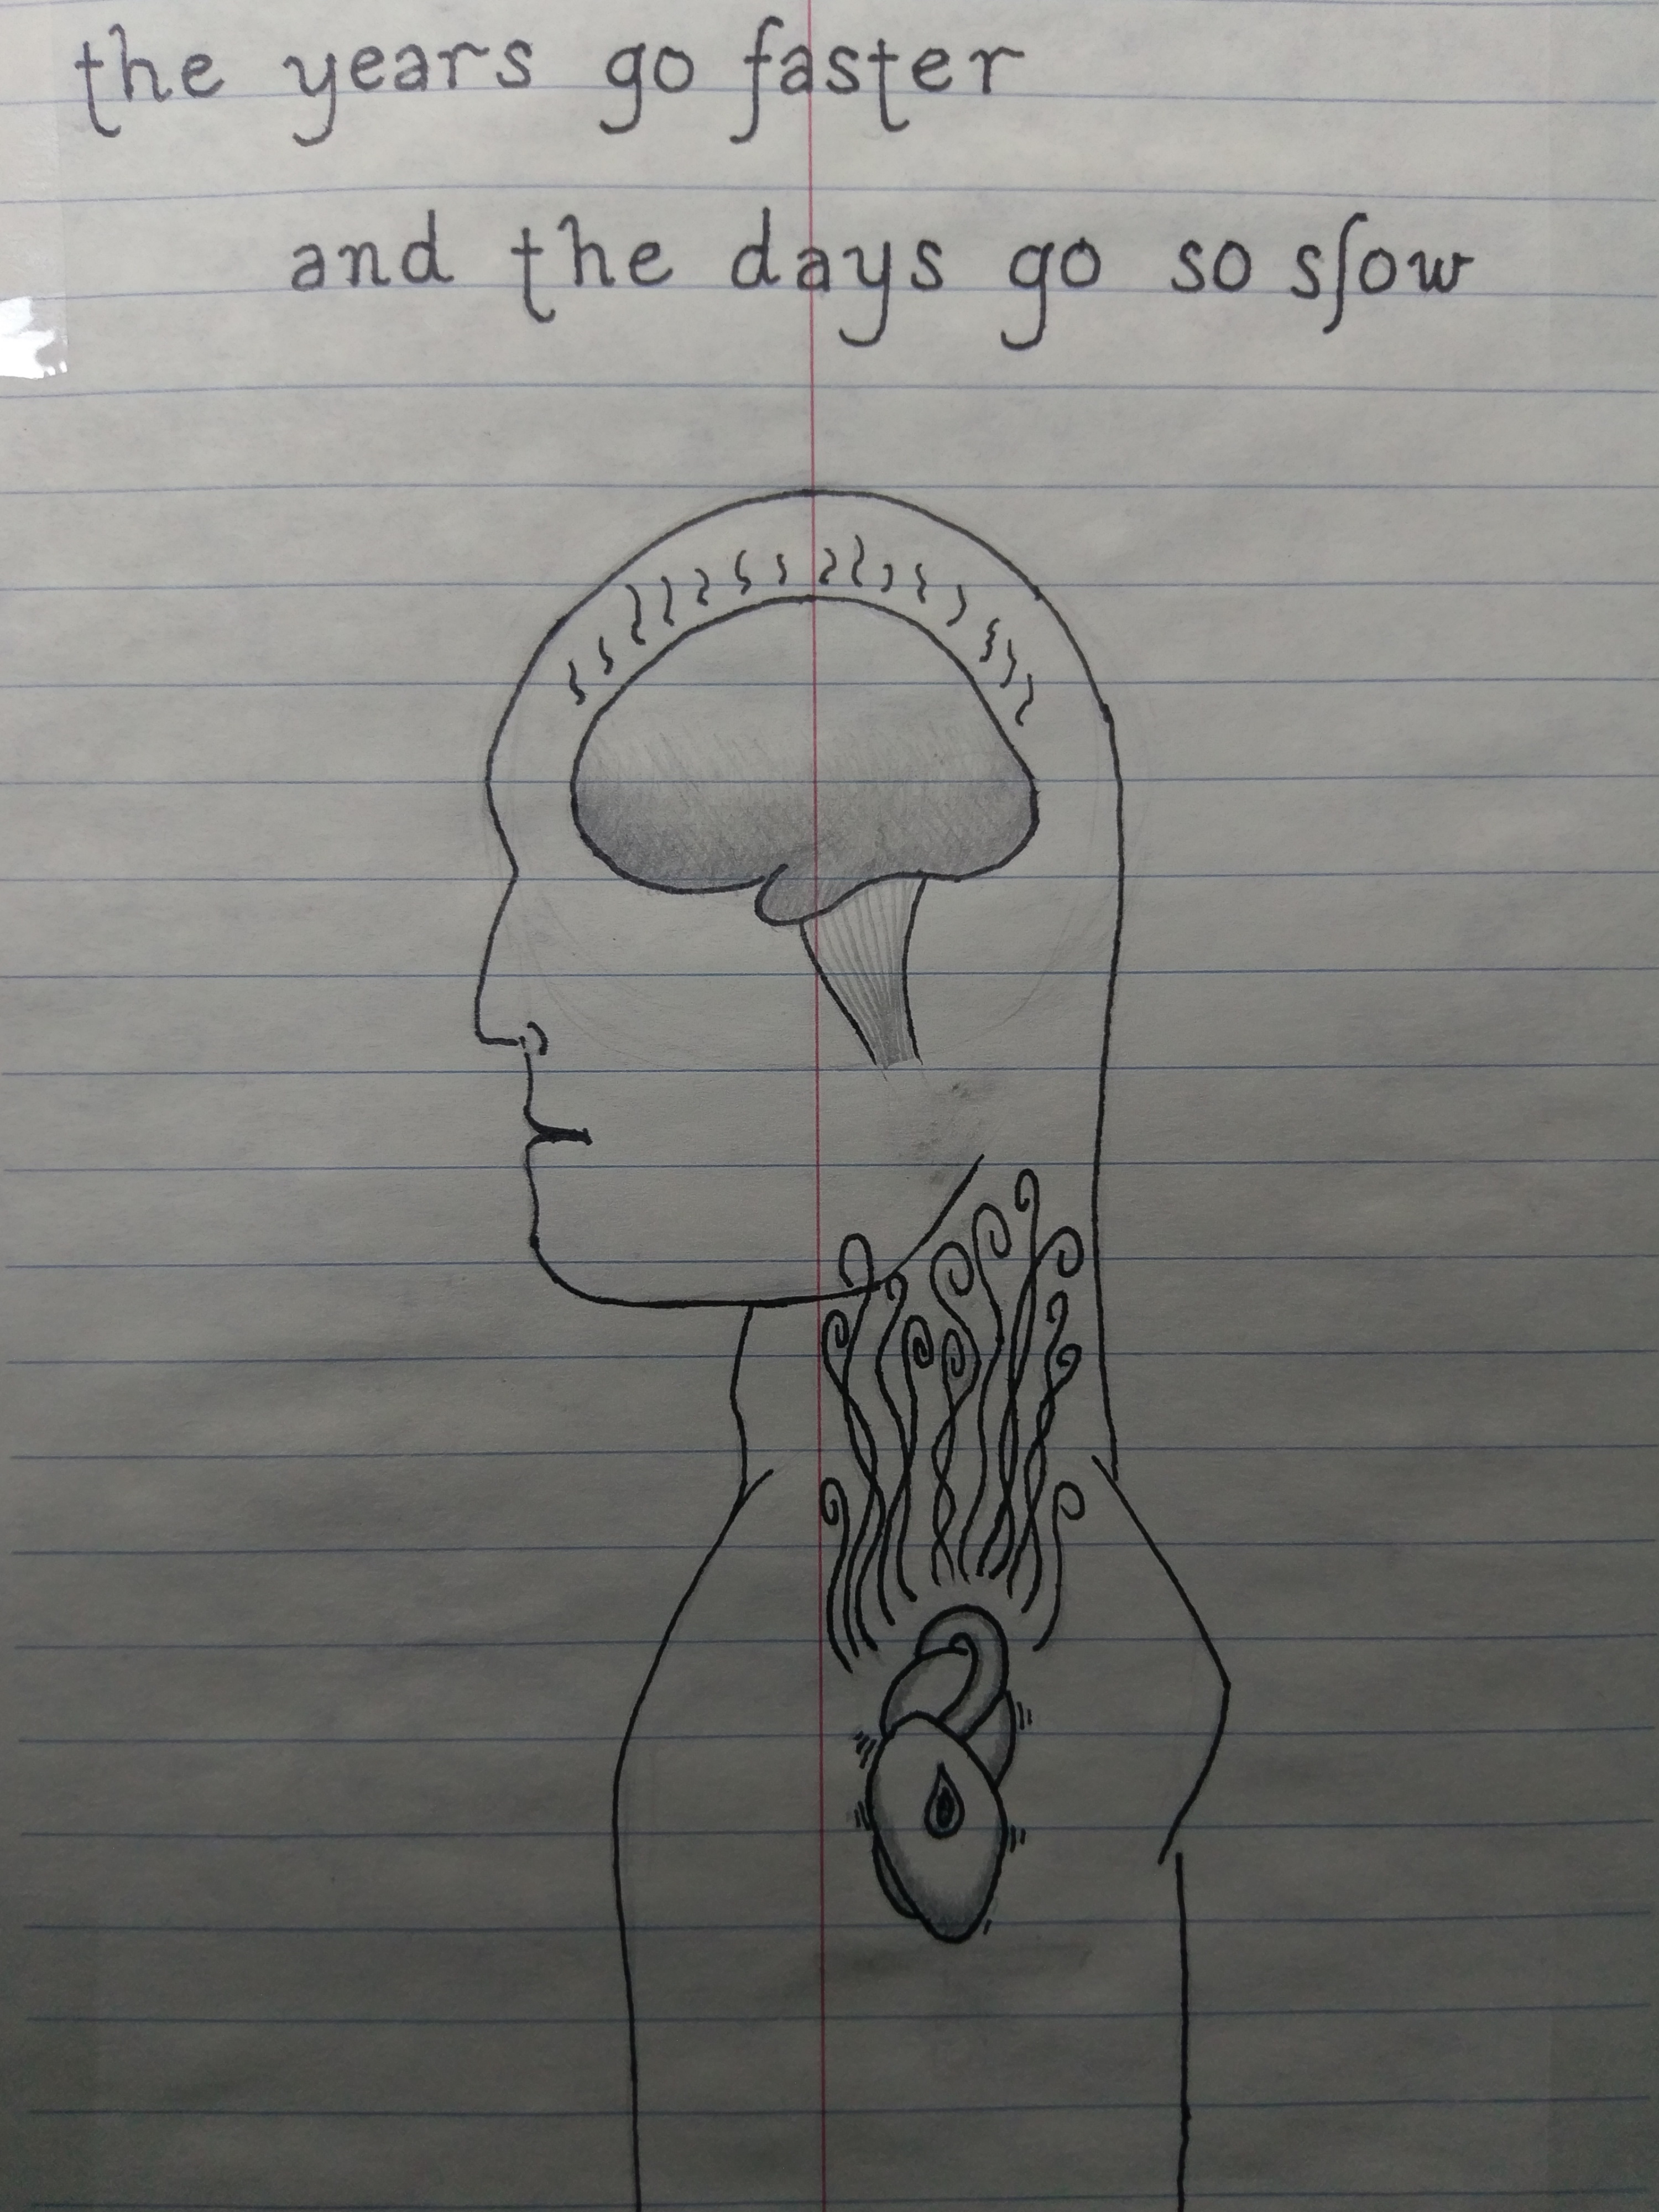 the years go faster
and the days go so slow